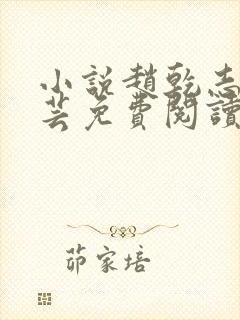 小說趙乾志
芸免費閱讀
茆家培